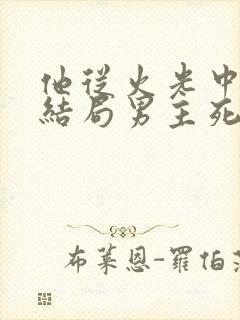 他從火光中
結局男主死
布萊恩-羅伯